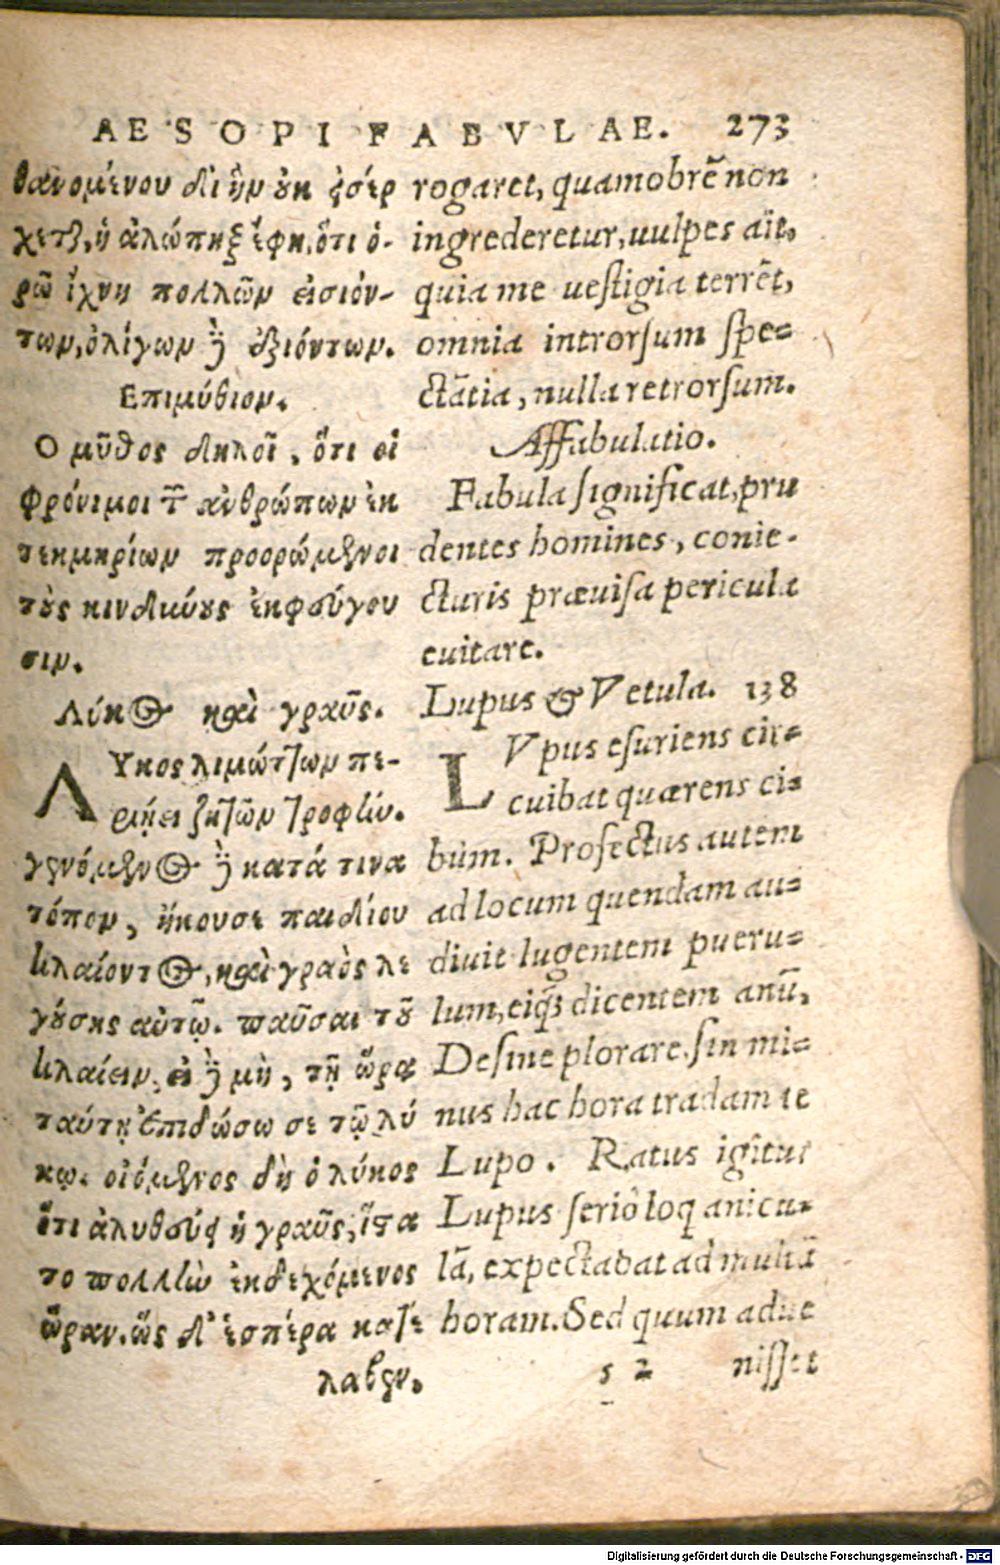 AESOPI FABVLAE. 273
θανομένου δι ἣν οὐκ εἰσέρ
χεται, ἡ ἀλώπηξ ἔφη, ὅτι ὁ-
ρῶ ἴχνη πολλῶν εἰσιόν-
των, ὀλίγων δὲ ἐξιόντων.
Επιμύθιον.
Ο μῦθος δηλοῖ, ὅτι οἱ
φρόνιμοι τῶν ἀνθρώπων ἐκ
τεκμηρίων προορώμενοι
τοὺς κινδύνους ἐκφεύγου
σιν.
Λύκος καὶ γραῦς.
ΛΥκος λιμώττων πε-
ριῄει ζητῶν τροφήν.
γενόμενος δὲ κατά τινα
τόπον, ἤκουσε παιδίου
κλαίοντος, καὶ γραὸς λε
γούσης αὐτῷ. παῦσαι τοῦ
κλαίειν, εἰ δὲ μὴ, τῇ ὥρᾳ
ταύτῃ ἐπιδώσω σε τῷ λύ
κῳ. οἰόμενος δὴ ὁ λύκος
ὅτι ἀληθεύει ἡ γραῦς, ἵστα
το πολλὴν ἐκδεχόμενος
ὥραν. ὡς δ' ἑσπέρα κατέ
λαβεν,
rogaret, quamobrē non
ingrederetur, uulpes ait,
quia me uestigia terrēt,
omnia introrsum spe-
ctātia, nulla retrorsum.
Affabulatio.
Fabula significat, pru
dentes homines, conie-
cturis præuisa pericula
euitare.
Lupus & Vetula. 138
LVpus esuriens cir-
cuibat quærens ci-
bum. Profectus autem
ad locum quendam au-
diuit lugentem pueru-
lum, eiq́; dicentem anū,
Desine plorare, sin mi-
nus hac hora tradam te
Lupo. Ratus igitur
Lupus serió loq anicu-
lā, expectabat ad multā
horam. Sed quum adue
s 2 nisset
Digitalisierung gefördert durch die Deutsche Forschungsgemeinschaft - DFG